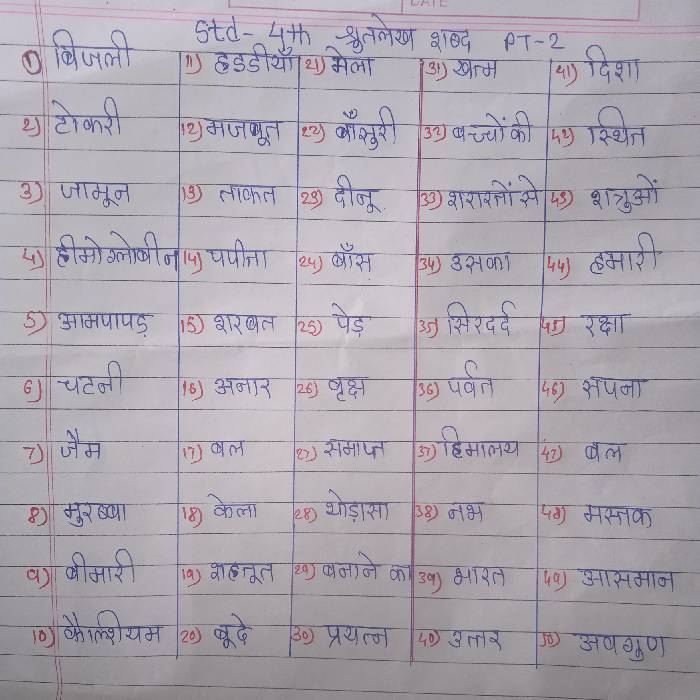 DATE
Std- 4th श्रुतलेख शब्द PT-2
1) बिजली 11) हडडीयाँ 21) मेला 31) खत्म 41) दिशा
2) टोकरी 12) मजबूत 22) बाँसुरी 32) बच्चों की 42) स्थित
3) जामून 13) ताकत 23) दीनू 33) शरारतों से 43) शत्रुओं
4) हीमोग्लोबीन 14) पपीता 24) बाँस 34) उसका 44) हमारी
5) आमपापड़ 15) शरबत 25) पेड़ 35) सिरदर्द 45) रक्षा
6) चटनी 16) अनार 26) वृक्ष 36) पर्वत 46) सपना
7) जैम 17) बल 27) समाप्त 37) हिमालय 47) बल
8) मुरब्बा 18) केला 28) थोड़ासा 38) नभ 48) मस्तक
9) बीमारी 19) शहतूत 29) बनाने का 39) भारत 49) आसमान
10) कैल्शियम 20) बूदे 30) प्रयत्न 40) उत्तर 50) अवगुण